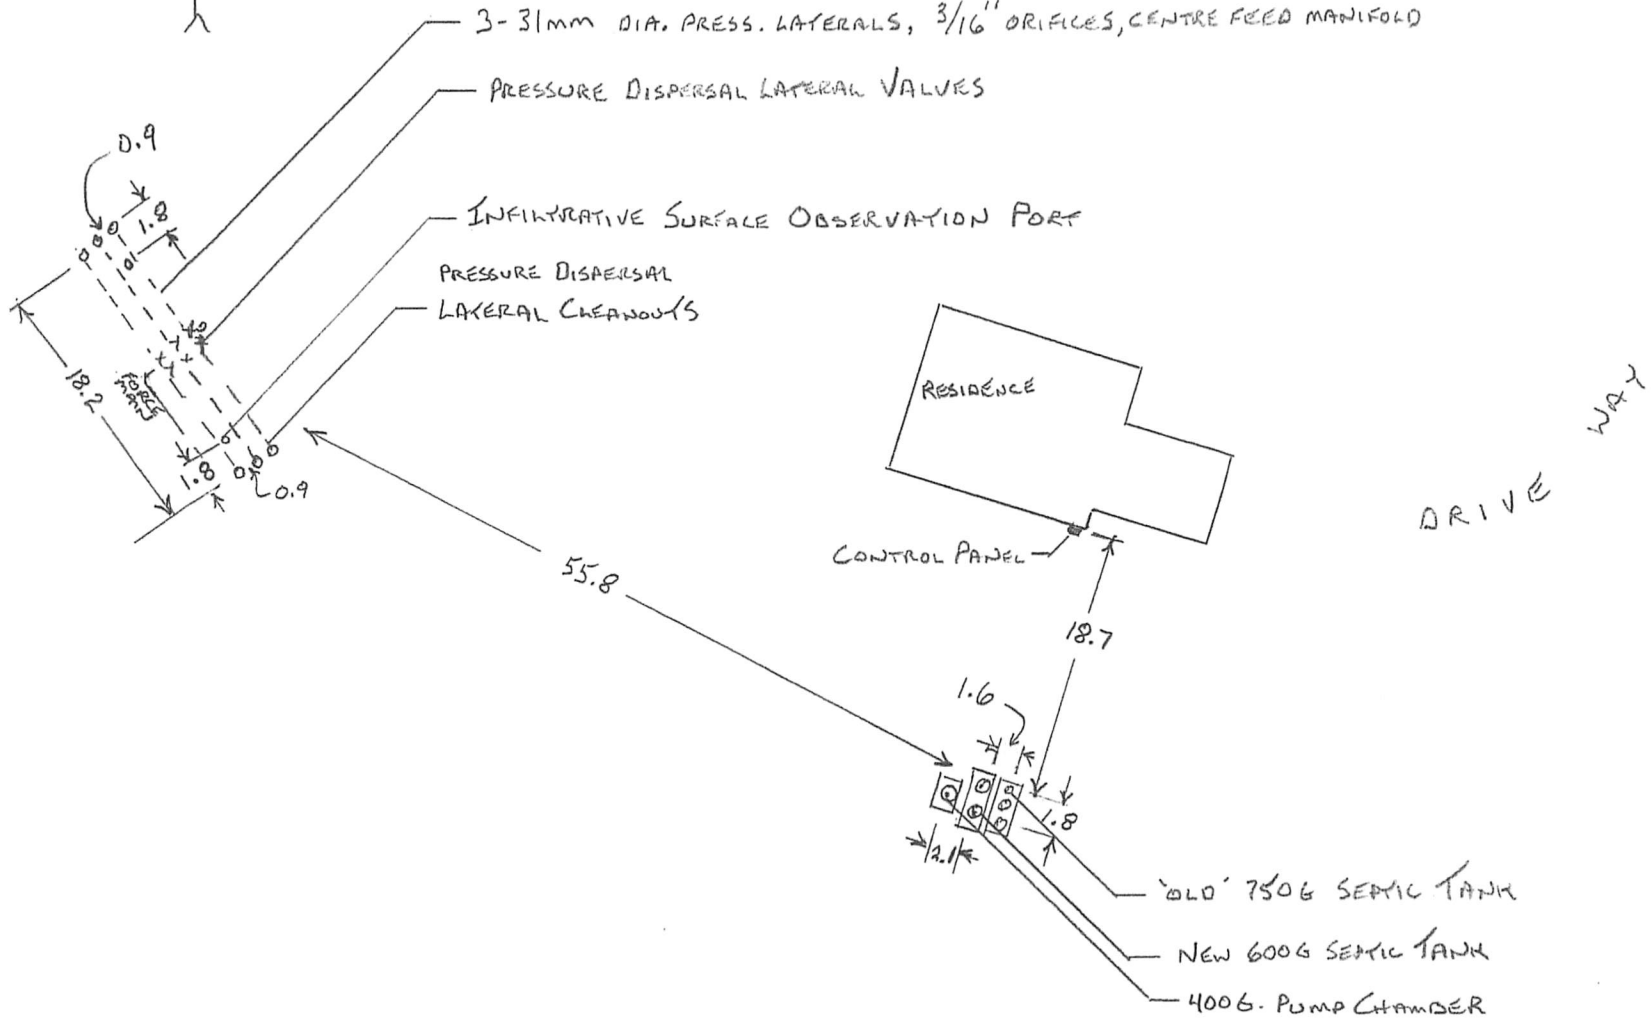 3-31mm DIA. PRESS. LATERALS, 3/16" ORIFICES, CENTRE FEED MANIFOLD
PRESSURE DISPERSAL LATERAL VALVES
0.9
1.8
INFILTRATIVE SURFACE OBSERVATION PORT
PRESSURE DISPERSAL
LATERAL CLEANOUTS
18.2
FORCE
MAIN
1.8
0.9
RESIDENCE
DRIVE WAY
CONTROL PANEL
55.8
18.7
1.6
1.8
2.1
'OLD' 750G SEPTIC TANK
NEW 600G SEPTIC TANK
400G. PUMP CHAMBER